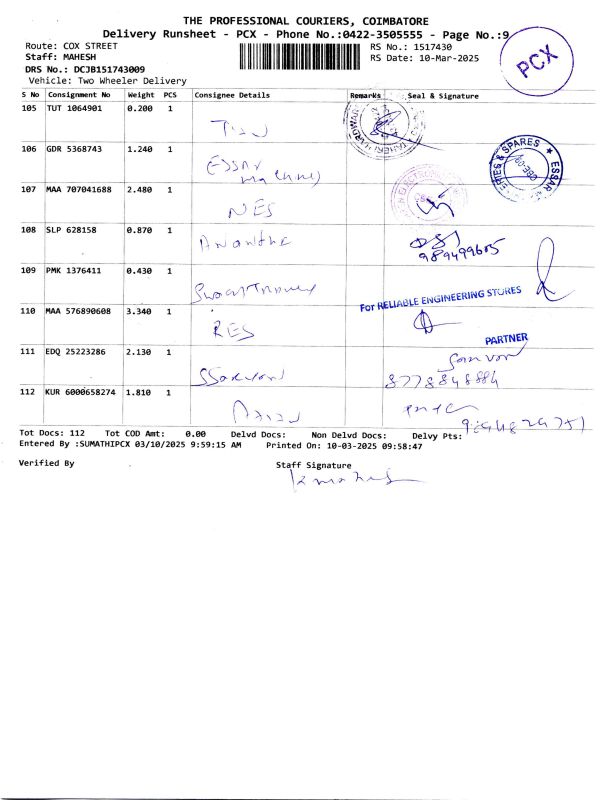 THE PROFESSIONAL COURIERS, COIMBATORE
Delivery Runsheet - PCX - Phone No.:0422-3505555 - Page No.:9
Route: COX STREET
RS No.: 1517430
Staff: MAHESH
RS Date: 10-Mar-2025
DRS No.: DCJB151743009
PCX
Vehicle: Two Wheeler Delivery
S No Consignment No Weight PCS Consignee Details Remarks Seal & Signature
105 TUT 1064901 0.200 1
106 GDR 5368743 1.240 1
ESSAR
& SPARES ★ ESSAR
107 MAA 707041688 2.480 1
NES
108 SLP 628158 0.870 1
109 PMK 1376411 0.430 1
For RELIABLE ENGINEERING STORES
110 MAA 576890608 3.340 1
RES
PARTNER
111 EDQ 25223286 2.130 1
8778848884
112 KUR 6000658274 1.810 1
Tot Docs: 112 Tot COD Amt: 0.00 Delvd Docs: Non Delvd Docs: Delvy Pts:
Entered By :SUMATHIPCX 03/10/2025 9:59:15 AM Printed On: 10-03-2025 09:58:47
Verified By
Staff Signature